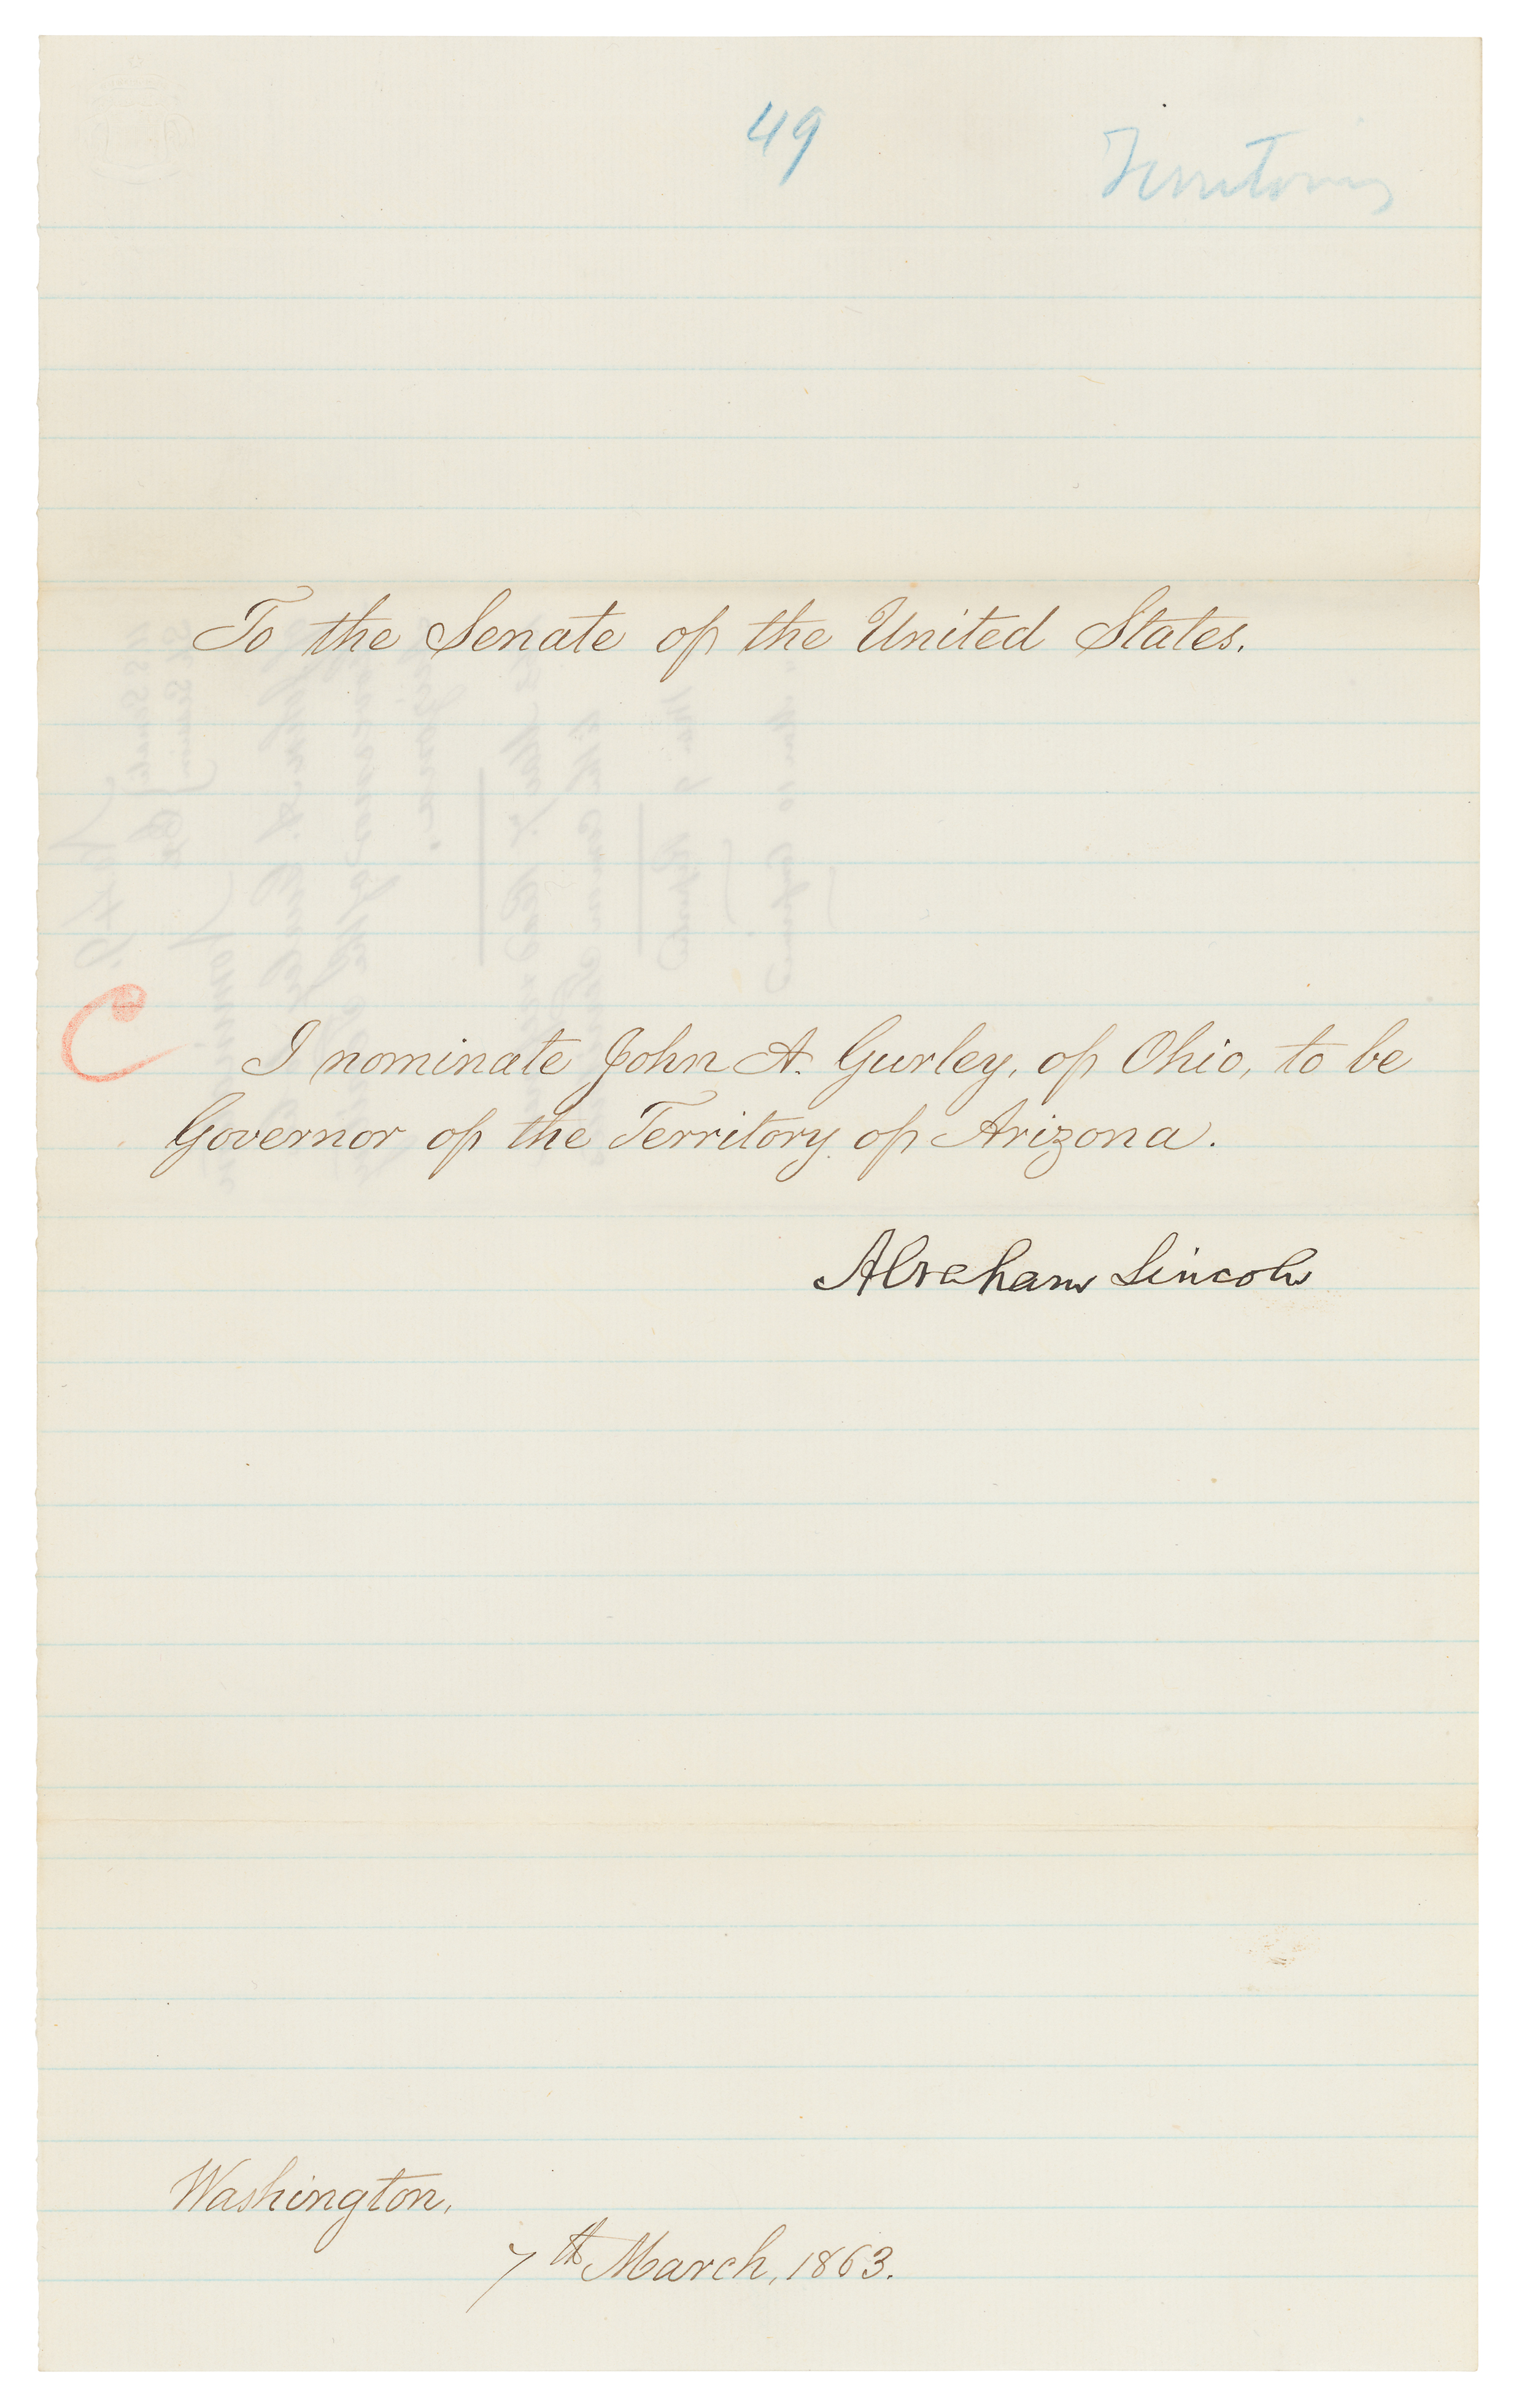 49
Territories
To the Senate of the United States.
C
I nominate John A. Gurley, of Ohio, to be
Governor of the Territory of Arizona.
Abraham Lincoln
Washington,
7th March, 1863.